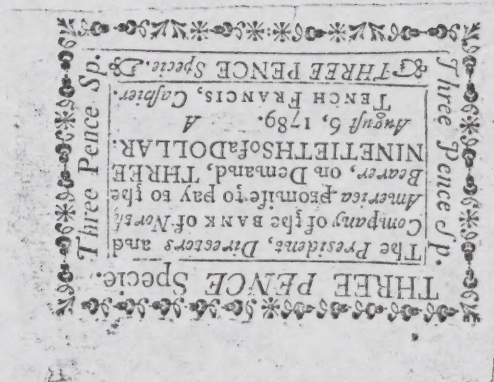 THREE PENCE Specie.
The President, Directors and
Company of the BANK of North
America promise to pay to the
Bearer, on Demand, THREE
NINETIETHS of a DOLLAR.
August 6, 1789. A
TENCH FRANCIS, Cashier.
THREE PENCE Specie.
Three Pence Sp.
Three Pence Sp.